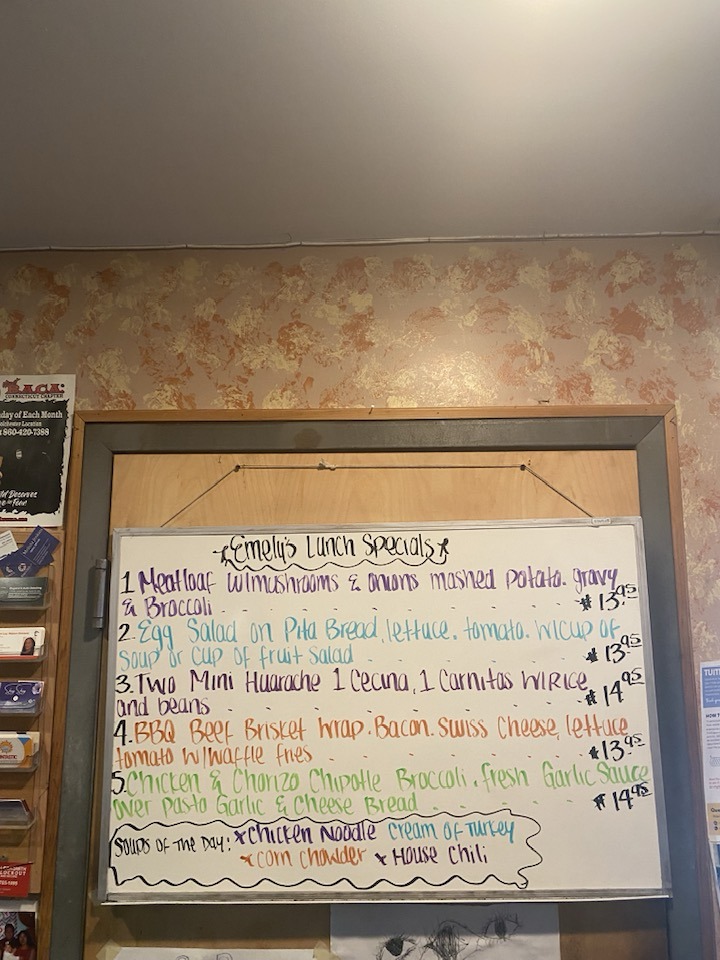 CONNECTICUT CHAPTER
day of Each Month
860-420-7388
Emely's Lunch Specials
1 Meatloaf w/mushrooms & onions mashed potato. gravy
& Broccoli . . . . . . . $13.95
2. Egg Salad on Pita Bread, lettuce. tomato. w/cup of
soup or cup of fruit salad . . . . . $13.95
3. Two Mini Huarache 1 Cecina, 1 Carnitas w/Rice
and beans . . . . . . . $14.95
4. BBQ Beef Brisket wrap. Bacon. Swiss Cheese, lettuce
tomato w/waffle fries . . . . . $13.95
5. Chicken & Chorizo Chipotle Broccoli. fresh Garlic Sauce
over pasta Garlic & Cheese Bread . . . . $14.95
Soups of the Day: x Chicken Noodle Cream of Turkey
x Corn Chowder x House Chili